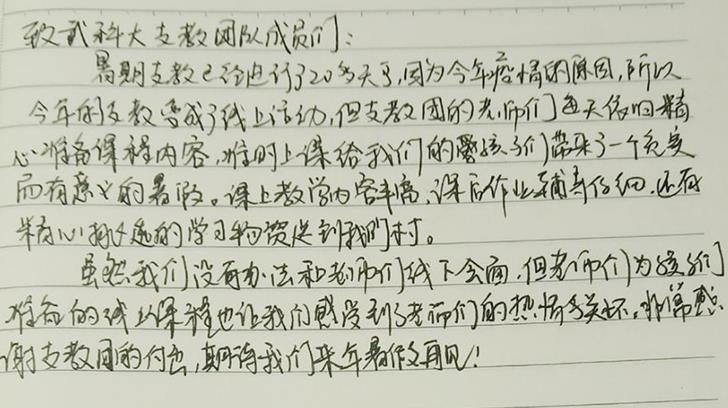 致武科大支教团队成员们：
暑期支教已经进行了20多天了，因为今年疫情的原因，所以
今年的支教变成了线上活动，但支教团的老师们每天依旧精
心准备课程内容，准时上课给我们的孩子们带来了一个充实
而有意义的暑假。课上教学内容丰富，课后作业辅导仔细，还有
精心挑选的学习物资送到我们村。
虽然我们没有办法和老师们线下会面，但老师们为孩子们
准备的线上课程也让我们感受到了老师们的热情与关怀。非常感
谢支教团的付出，期待我们来年暑假再见！